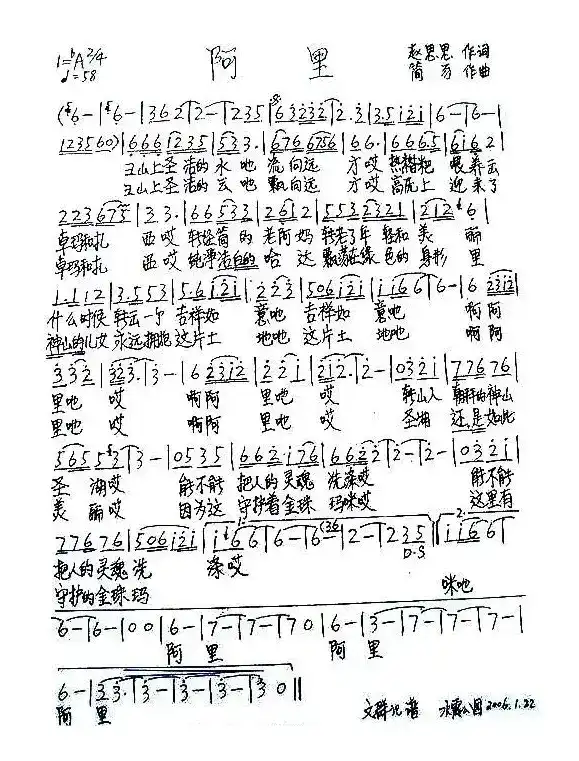 1=♭A 2/4 阿 里 赵思思 作词
♩=58 简方 作曲
(6-|6-|3 6 2|2-|2 3 5|6 3 2 3 2|2·3|3·5 i 2 i|6-|6-|
1 2 3 5 6 0)|6 6 6 1 2 3 5|5 3 3·|6 7 6 6 7 5 6|6 6·|6 6 6 6 5|6 i 6 2|
山上圣洁的水 地 流向远 方哎 热糌粑 喂养云
山上圣洁的云 地 飘向远 方哎 高 上 迎来了
2 2 3 6 7 5|3·3·|6 6 5 3 3|2 6 1 2|5 5 3 2 3 2 1|2 1 2 6|6|
卓玛和扎 西哎 转经筒的 老阿妈 转老了年 轻和美 丽
卓玛和扎 西哎 纯净洁白的 哈 达 色的身影 里
1·1 1 2|3·5 5 3|5·6 i 2 i|2 2 3|5 0 6 i 2 i|i i 6 6|6-|6 2 3 i 2|
什么时候 转云一个 吉祥如 意地 吉祥如 意地 啊阿
神山的儿女 永远拥抱 这片土 地地 这片土 地地 啊阿
3 3 2|3 2 3·|3-|6 2 3 i 2|2 2 i|2 i 2·|2-|0 3 2 i|7 7 6 7 6|
里地 哎 啊阿 里地 哎 转山人 的神山
里地 哎 啊阿 里地 哎 圣湖 还是如此
5 6 5 5 3|3-|0 5 3 5|6 6 2·i 7 6|6 6 2 2|2-|2-|0 3 2 i|
圣 湖哎 能不能 把人的灵魂 洗涤哎 能不能
美 丽哎 因为这 守护着金珠 玛咪哎 这里有
7 7 6 7 6|5 0 6 i 2 i|i 6 6|6-|6-(3 6|2-|2 3 5||i i 6 6|
D.S
把人的灵魂 洗 涤哎
守护的金珠 玛
咪地
6-|6-|0 0|6-|7-|7-|7 0|6-|3-|7-|7-|7-|
阿 里 阿 里
6-|3 3·|3-|3-|3-|3 0||
阿 里
文群记谱 2006.1.22